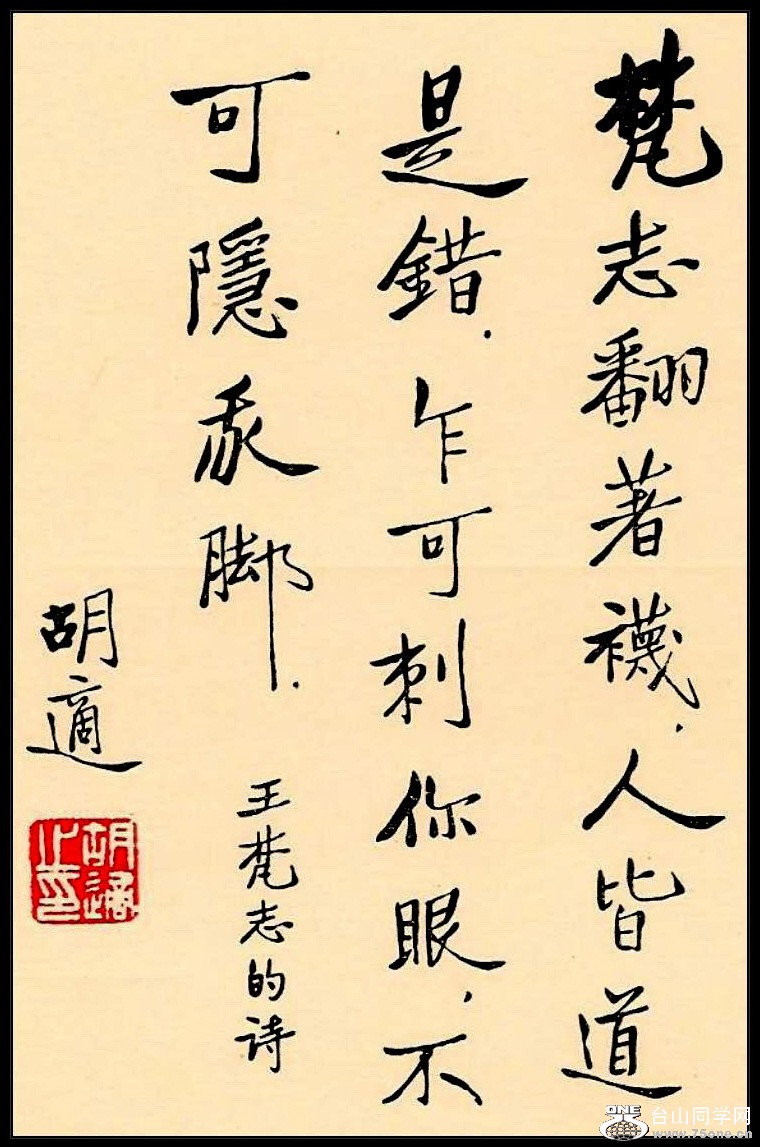 梵志翻著襪．人皆道
是錯．乍可刺你眼，不
可隱我脚．
王梵志的诗
胡適
胡適之印
ONE
台山同学网
www.75one.cn